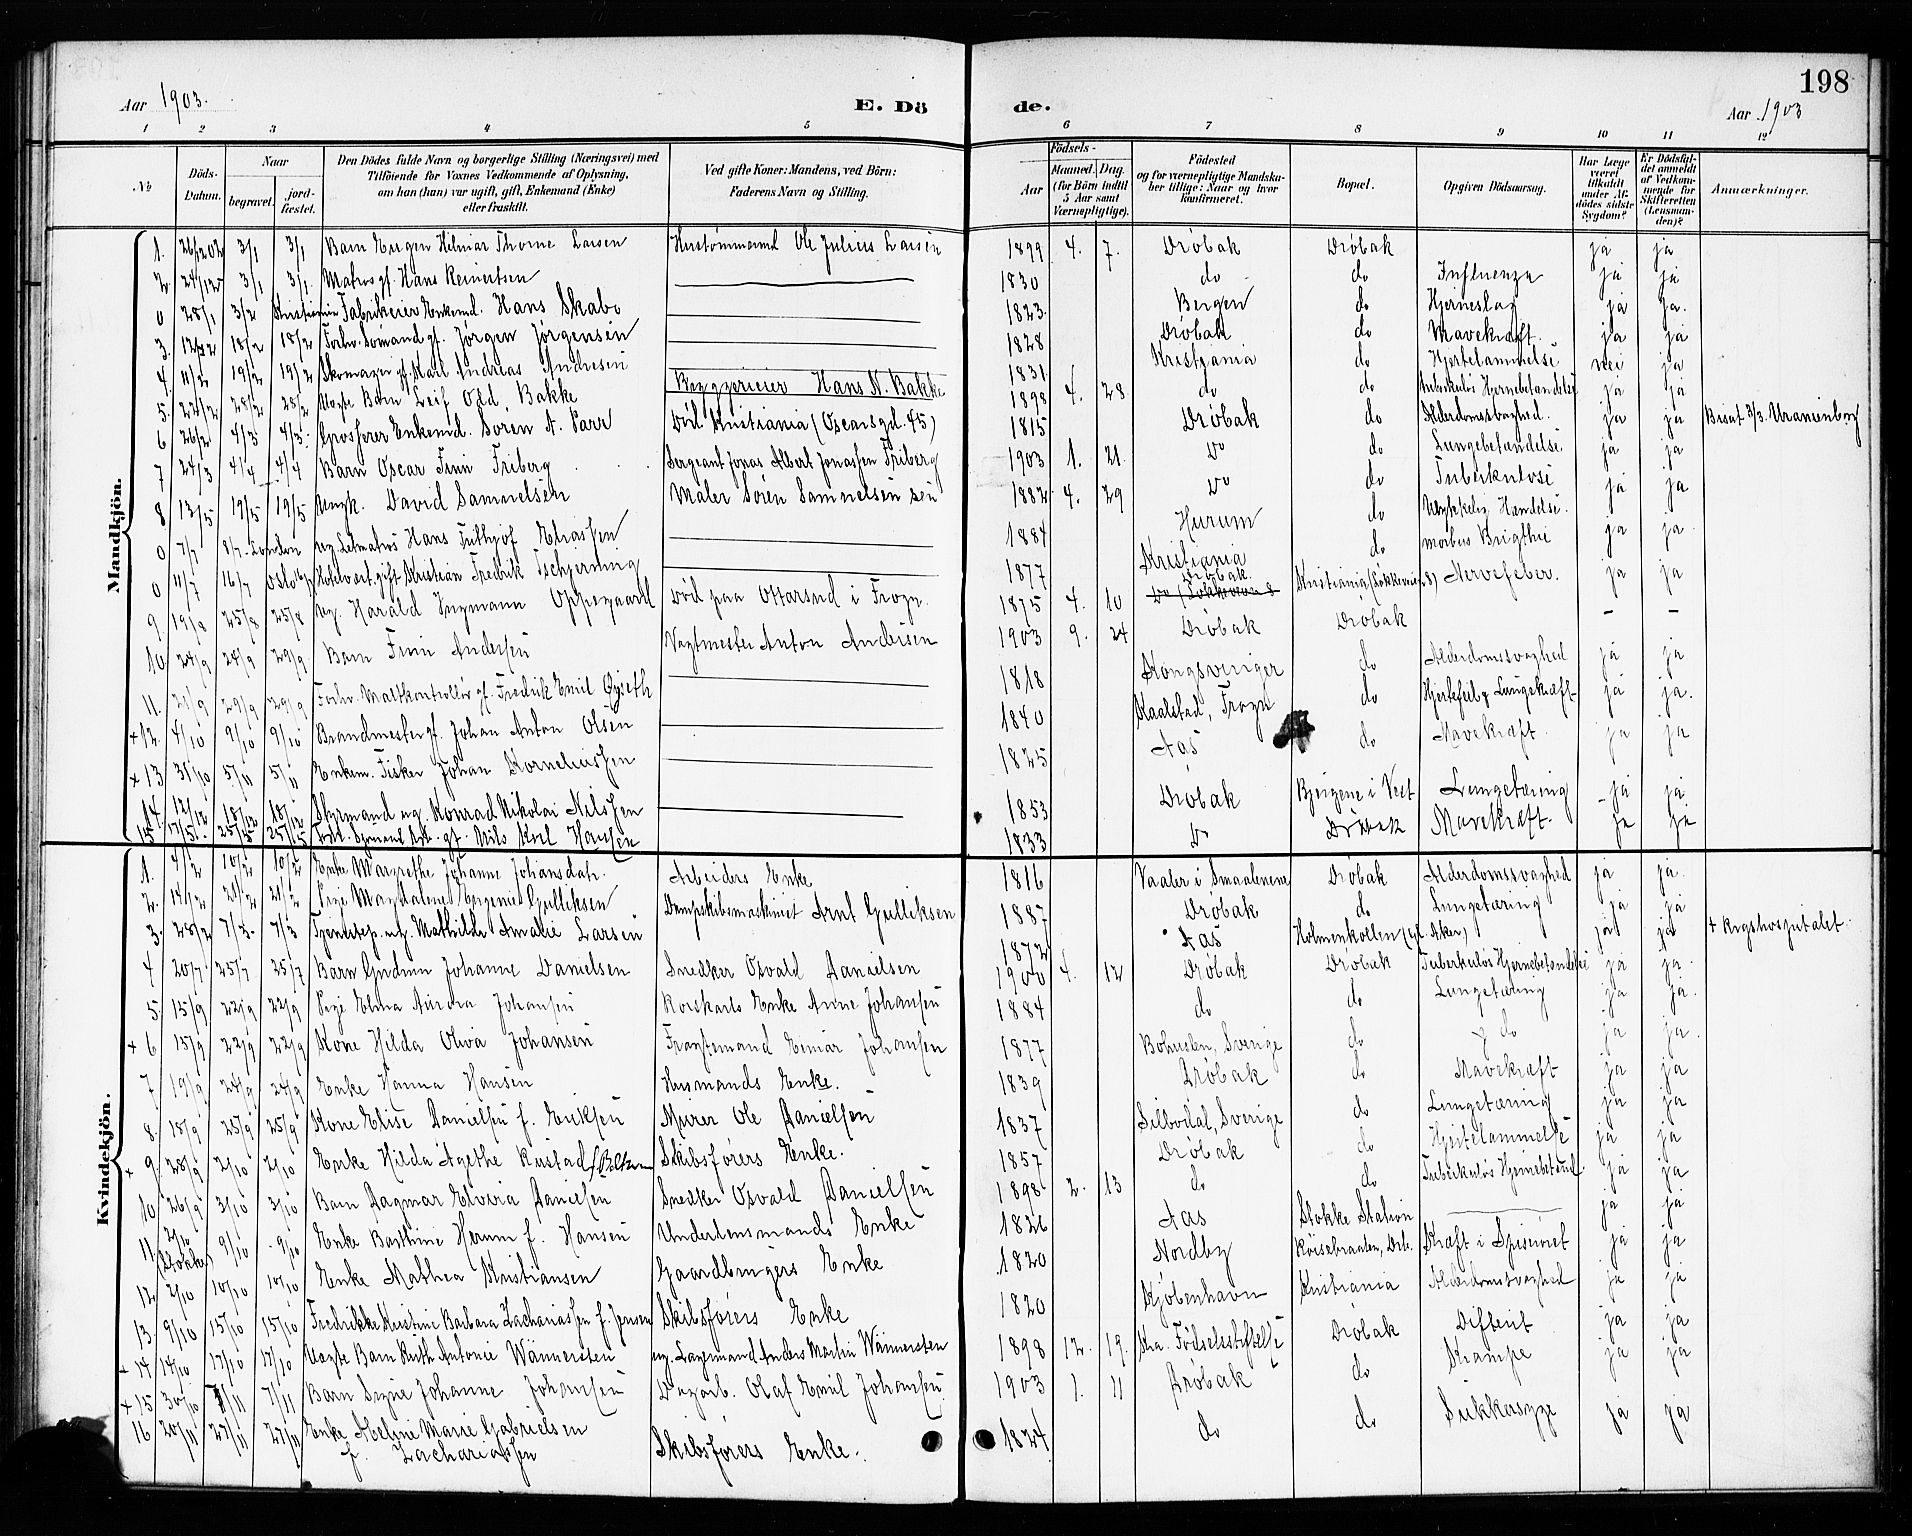 198
Aar 1903.
E. Dö
de.
Aar 1903
1 2 3 4 5 6 7 8 9 10 11 12
№
Döds-Datum.
Naar
begravet.
jord-fæstet.
Den Dödes fulde Navn og borgerlige Stilling (Næringsvei) med Tilföiende for Voxnes Vedkommende af Oplysning, om han (hun) var ugift, gift, Enkemand (Enke) eller fraskilt.
Ved gifte Koner: Mandens, ved Börn: Faderens Navn og Stilling.
Födsels-
Aar
Maaned.
Dag.
(for Börn indtil 5 Aar samt Værnepligtige).
Födested og for værnepligtige Mandskaber tillige: Naar og hvor konfirmeret.
Bopæl.
Opgiven Dödsaarsag.
Har Læge været tilkaldt under Afdödes sidste Sygdom?
Er Dödsfaldet anmeldt af Vedkommende for Skifteretten (Lensmanden)?
Anmærkninger.
Mandkjön.
1. 26/12 02 3/1 3/1 Barn Eugen Hilmar Thorne Larsen Hustømmermd Ole Julius Larsen 1899 4. 7. Drøbak Drøbak ja ja
2 24/12 3/1 3/1 Matros gf. Hans Reinertsen 1830 do do Influenza ja ja
0 28/1 3/2 Kristiania Fabrikeier Enkemd. Hans Skabo 1823 Bergen do Hjerneslag ja ja.
3. 12/2 18/2 18/2 Forhv. Sømand gf. Jørgen Jørgensen 1828 Drøbak do Mavekræft. ja ja
4. 11/2 19/2 19/2 Skomager gf. Karl Andreas Andresen 1831 Kristiania do Hjertelammelse nei ja
5. 22/2 28/2 28/2 Uægte Barn Leif Odd Bakke Byggeier Hans N. Bakke 1898 4. 28 do do Tuberkuløs Hjernebetændelse ja ja
6 26/2 4/3 4/3 Grosserer Enkemd. Søren A. Parr Død Kristiania (Oscarsgd. 45) 1815 Drøbak do Alderdomssvaghed. ja ja Bisat 3/3. Uranienborg
7 24/3 4/4 4/4 Barn Oscar Finn Friberg Sergeant Jonas Albert Jonassen Friberg 1903 1. 21 Do do Lungebetændelse ja ja
8 13/5 19/5 19/5 Ungk. David Samuelsen Maler Søren Samuelsen sen 1882 4. 29 Do do Tuberkulose ja ja
0 7/7 8/7 London ug. Letmatros Hans Frithjof Eliassen 1884 Hurum do Ulykkelig Hændelse. ja ja
0 11/7 16/7 Oslo 16/7 Hotelvert gift Kristian Fredrik Tschjerning 1877 Kristiania do morbus Brigthii ja ja
9 19/8 25/8 25/8 ug. Harald Ingmann Oppegaard Død paa Ottarsrud i Frogn. 1875 4. 10 Drøbak. Kristiania (Løkkeveien 8) Nervefeber. ja ja
10 24/9 24/9 29/9 Barn Finn Andersen Vagtmester Anton Andersen 1903 9. 24 Drøbak Drøbak – –
11. 21/9 29/9 29/9 Forhv. Maltkontrollør gf. Fredrik Emil Gjseth 1818 Kongsvinger do Alderdomssvaghed ja ja
+12. 4/10 9/10 9/10 Brandmester gf. Johan Anton Olsen 1840 Kaalstad, Frogn do Hjertefeil & Lungekræft ja ja.
+ 13 31/10 5/11 5/11 Enkem. Fisker Johan Korneliussen 1825 Aas do Mavekræft. ja ja
14. 12/12 18/12 18/12 Styrmand ug. Konrad Nikolai Nilssen 1853 Drøbak Bjergene i Vest Lungetæring ja ja
15 17/12 23/12 23/12 Forh. Sømand Arb. gf. Nils Karl Hanssen 1833 Do Drøbak Mavekræft. ja ja
Kvindekjön.
1. 4/2 10/2 10/2 Enke Margrethe Johanne Johansdatr. Arbeiders Enke 1816 Vaaler i Smaalenene Drøbak Alderdomssvaghed ja ja.
2. 14/2 21/2 21/2 Pige Magdalene Eugenie Gulliksen Dampskibsmaskinist Arnt Gulliksen 1887 Drøbak do Lungetæring ja ja
3. 28/2 7/3 7/3 Tjenestep. ug. Mathilde Amalie Larsen 1872 Aas Holmenkollen (i Aker) ja ja + Rigshospitalet.
4 20/7 25/7 25/7 Barn Gudrun Johanne Danielsen Snedker Osvald Danielsen 1900 4. 12 Drøbak Drøbak Tuberkuløs Hjernebetændelse ja ja
5 15/9 22/9 22/9 Pige Elma Aurora Johansen Korskarls Enke Anne Johansen 1884 do do Lungetæring ja ja.
+ 6 15/9 22/9 22/9 Kone Hilda Oliva Johansen Fragtemand Einar Johansen 1877 Bohuslen, Sverige do do ja ja.
7 19/9 24/9 24/9 Enke Hanna Hansen Husmands Enke. 1839 Drøbak do Mavekræft ja ja
8. 18/9 25/9 25/9 Kone Elise Danielsen f. Eriksen Murer Ole Danielsen 1837 Silbodal, Sverige do Lungetæring ja ja
+ 9. 28/9 2/10 2/10 Enke Hilda Agethe Rustad Skibsførers Enke. 1857 Drøbak do Hjertelammelse ja ja
10 26/9 3/10 3/10 Barn Dagmar Elvira Danielsen Snedker Osvald Danielsen 1898 2. 13 do do Tuberkuløs Hjernebetænd. ja ja
11. 2/10 (Stokke) 9/10 9/10 Enke Barthine Herum f. Hansen Underlensmands Enke 1826 Aas Stokke Station ja ja
12 2/10 10/10 10/10 Enke Mathea Kristiansen Gaardbrugers Enke 1820 Nordby Roisebraaten, Drb. Kræft i Spiserøret ja ja
13. 9/10 15/10 15/10 Fredrikke Kristine Barbara Zachariassen f. Jensen Skibsførers Enke 1820 Kjøbenhavn Kristiania Alderdomssvaghed ja ja
+ 14 14/10 17/10 17/10 Uægte Barn Ruth Antonie Wännersten ug. Lagermand Anders Martin Wännersten 1898 12. 19. Kra. Fødselsstiftelse Drøbak Difterit ja ja
+ 15 30/10 7/11 7/11 Barn Signe Johanne Johansen Dagarb. Olaf Emil Johansen 1903 1. 11 Drøbak do Krampe ja ja
16 20/11 27/11 27/11 Enke Abeline Marie Gabrielsen f. Zachariassen Skibsførers Enke. 1824 do do Sukkersyge ja ja